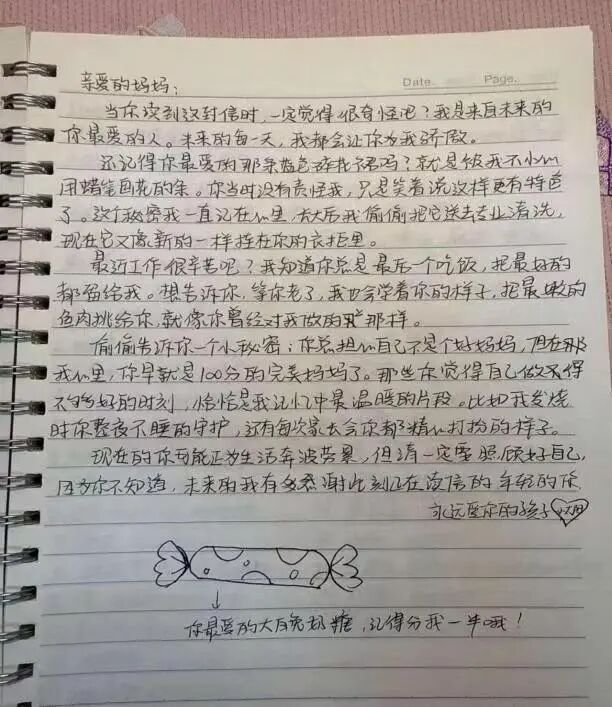 Date. Page.
亲爱的妈妈：
当你读到这封信时，一定觉得很奇怪吧？我是来自未来的
你最爱的人。未来的每一天，我都会让你为我骄傲。
还记得你最爱的那条蓝色碎花裙吗？就是被我不小心
用蜡笔画花的条。你当时没有责怪我，只是笑着说这样更有特色
了。这个秘密我一直记在心里，长大后我偷偷把它送去专业清洗，
现在它又像新的一样挂在你的衣柜里。
最近工作很辛苦吧？我知道你总是最后一个吃饭，把最好的
都留给我。想告诉你，等你老了，我也会学着你的样子，把最嫩的
鱼肉挑给你，就像你曾经对我做的那样。
偷偷告诉你一个小秘密：你总担心自己不是个好妈妈，但在
我心里，你早就是100分的完美妈妈了。那些你觉得自己做得
不够好的时刻，恰恰是我记忆中最温暖的片段。比如我发烧
时你整夜不睡的守护，还有每次家长会你都精心打扮的样子。
现在的你可能正为生活奔波劳累，但请一定要照顾好自己，
因为你不知道，未来的我有多感谢此刻正在读信的年轻的你
永远爱你的孩子
你最爱的大白兔奶糖，记得分我一半哦！